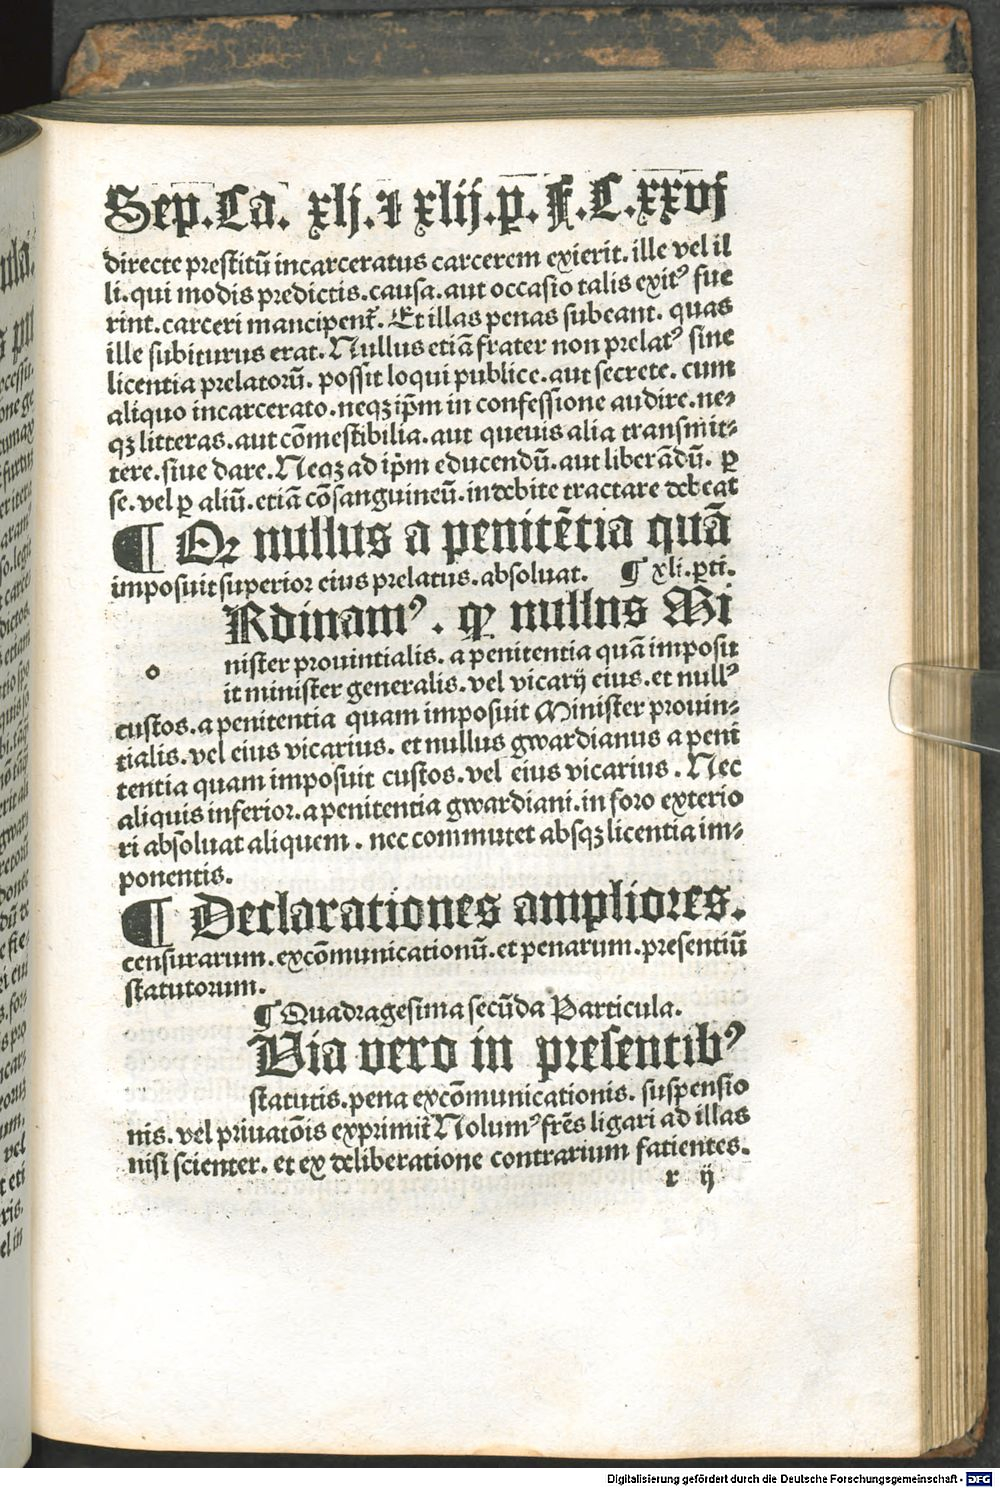 Sep. Ca. xlj. ⁊ xlij. p̱. F. C. xxvj
directe prestitū incarceratus carcerem exierit. ille vel il
li. qui modis predictis. causa. aut occasio talis exitꝰ fue
rint. carceri mancipent᷑. Et illas penas subeant. quas
ille subiturus erat. Nullus etiā frater non prelatꝰ sine
licentia prelatorū. possit loqui publice. aut secrete. cum
aliquo incarcerato. neqꝫ ip̄m in confessione audire. ne⸗
qꝫ litteras. aut cōmestibilia. aut queuis alia transmit⸗
tere. siue dare. Neqꝫ ad ip̄m educendū. aut liberādū. ꝑ
se. vel ꝑ aliū. etiā cōsanguineū. indebite tractare debeat
¶ Qꝛ nullus a penitētia quā
imposuit superior eius prelatus. absoluat. ¶ xli. ꝑti.
Rdinamꝰ. ꝙ nullus Mi
o nister prouintialis. a penitentia quā imposu
it minister generalis. vel vicarij eius. et nullꝰ
custos. a penitentia quam imposuit Minister prouin⸗
tialis. vel eius vicarius. et nullus gwardianus a peni
tentia quam imposuit custos. vel eius vicarius. Nec
aliquis inferior. a penitentia gwardiani. in foro exterio
ri absoluat aliquem. nec commutet absqꝫ licentia im⸗
ponentis.
¶ Declarationes ampliores.
censurarum. excōmunicationū. et penarum. presentiū
statutorum.
¶ Quadragesima secūda Particula.
Uia vero in presentibꝰ
statutis. pena excōmunicationis. suspensio
nis. vel priuaiōis exprimit᷑ Nolumꝰ fr̄es ligari ad illas
nisi scienter. et ex deliberatione contrarium fatientes.
r ij
Digitalisierung gefördert durch die Deutsche Forschungsgemeinschaft - DFG